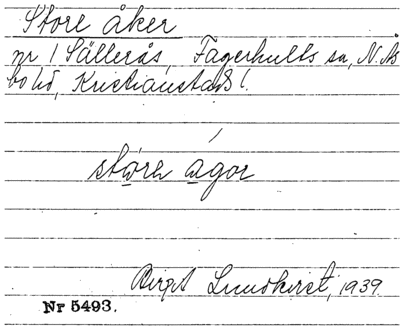 Store åker
nr 1 Sällerås, Fagerhults sn, N. Ås
bo hd, Kristianstads l.
störe agor
Birgit Lundkvist, 1939
Nr 5493.